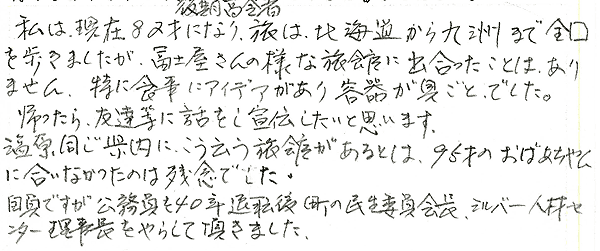 後期高令者
私は、現在82才になり、旅は、北海道から九洲まで全口
を歩きましたが、冨士屋さんの様な旅館に出合ったことは、あり
ません、特に食事にアイデアがあり容器が見ごと、でした。
帰ったら、友達等に話をし宣伝したいと思います。
塩原、同じ県内に、こう云う旅館があるとは、95才のおばあちゃん
に合いなかつたのは残念でした。
自負ですが公務員も40年退職後町の民生委員会長、シルバー人材セ
ンター理事長をやらして頂きました、